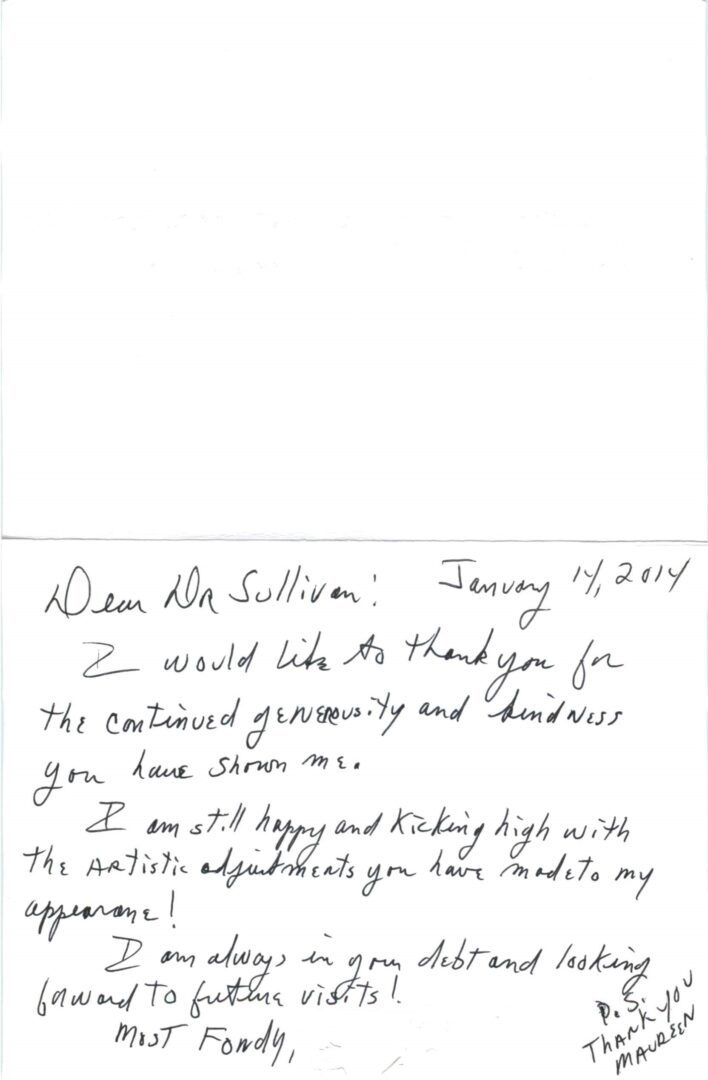 Dear DR Sullivan: January 14, 2014
I would like to thank you for
the continued generousity and kindness
you have shown me.
I am still happy and kicking high with
the Artistic adjustments you have made to my
appearane!
I am always in your debt and looking
forward to future visits!
Most Fondy,
P.S.
Thank you
Maureen